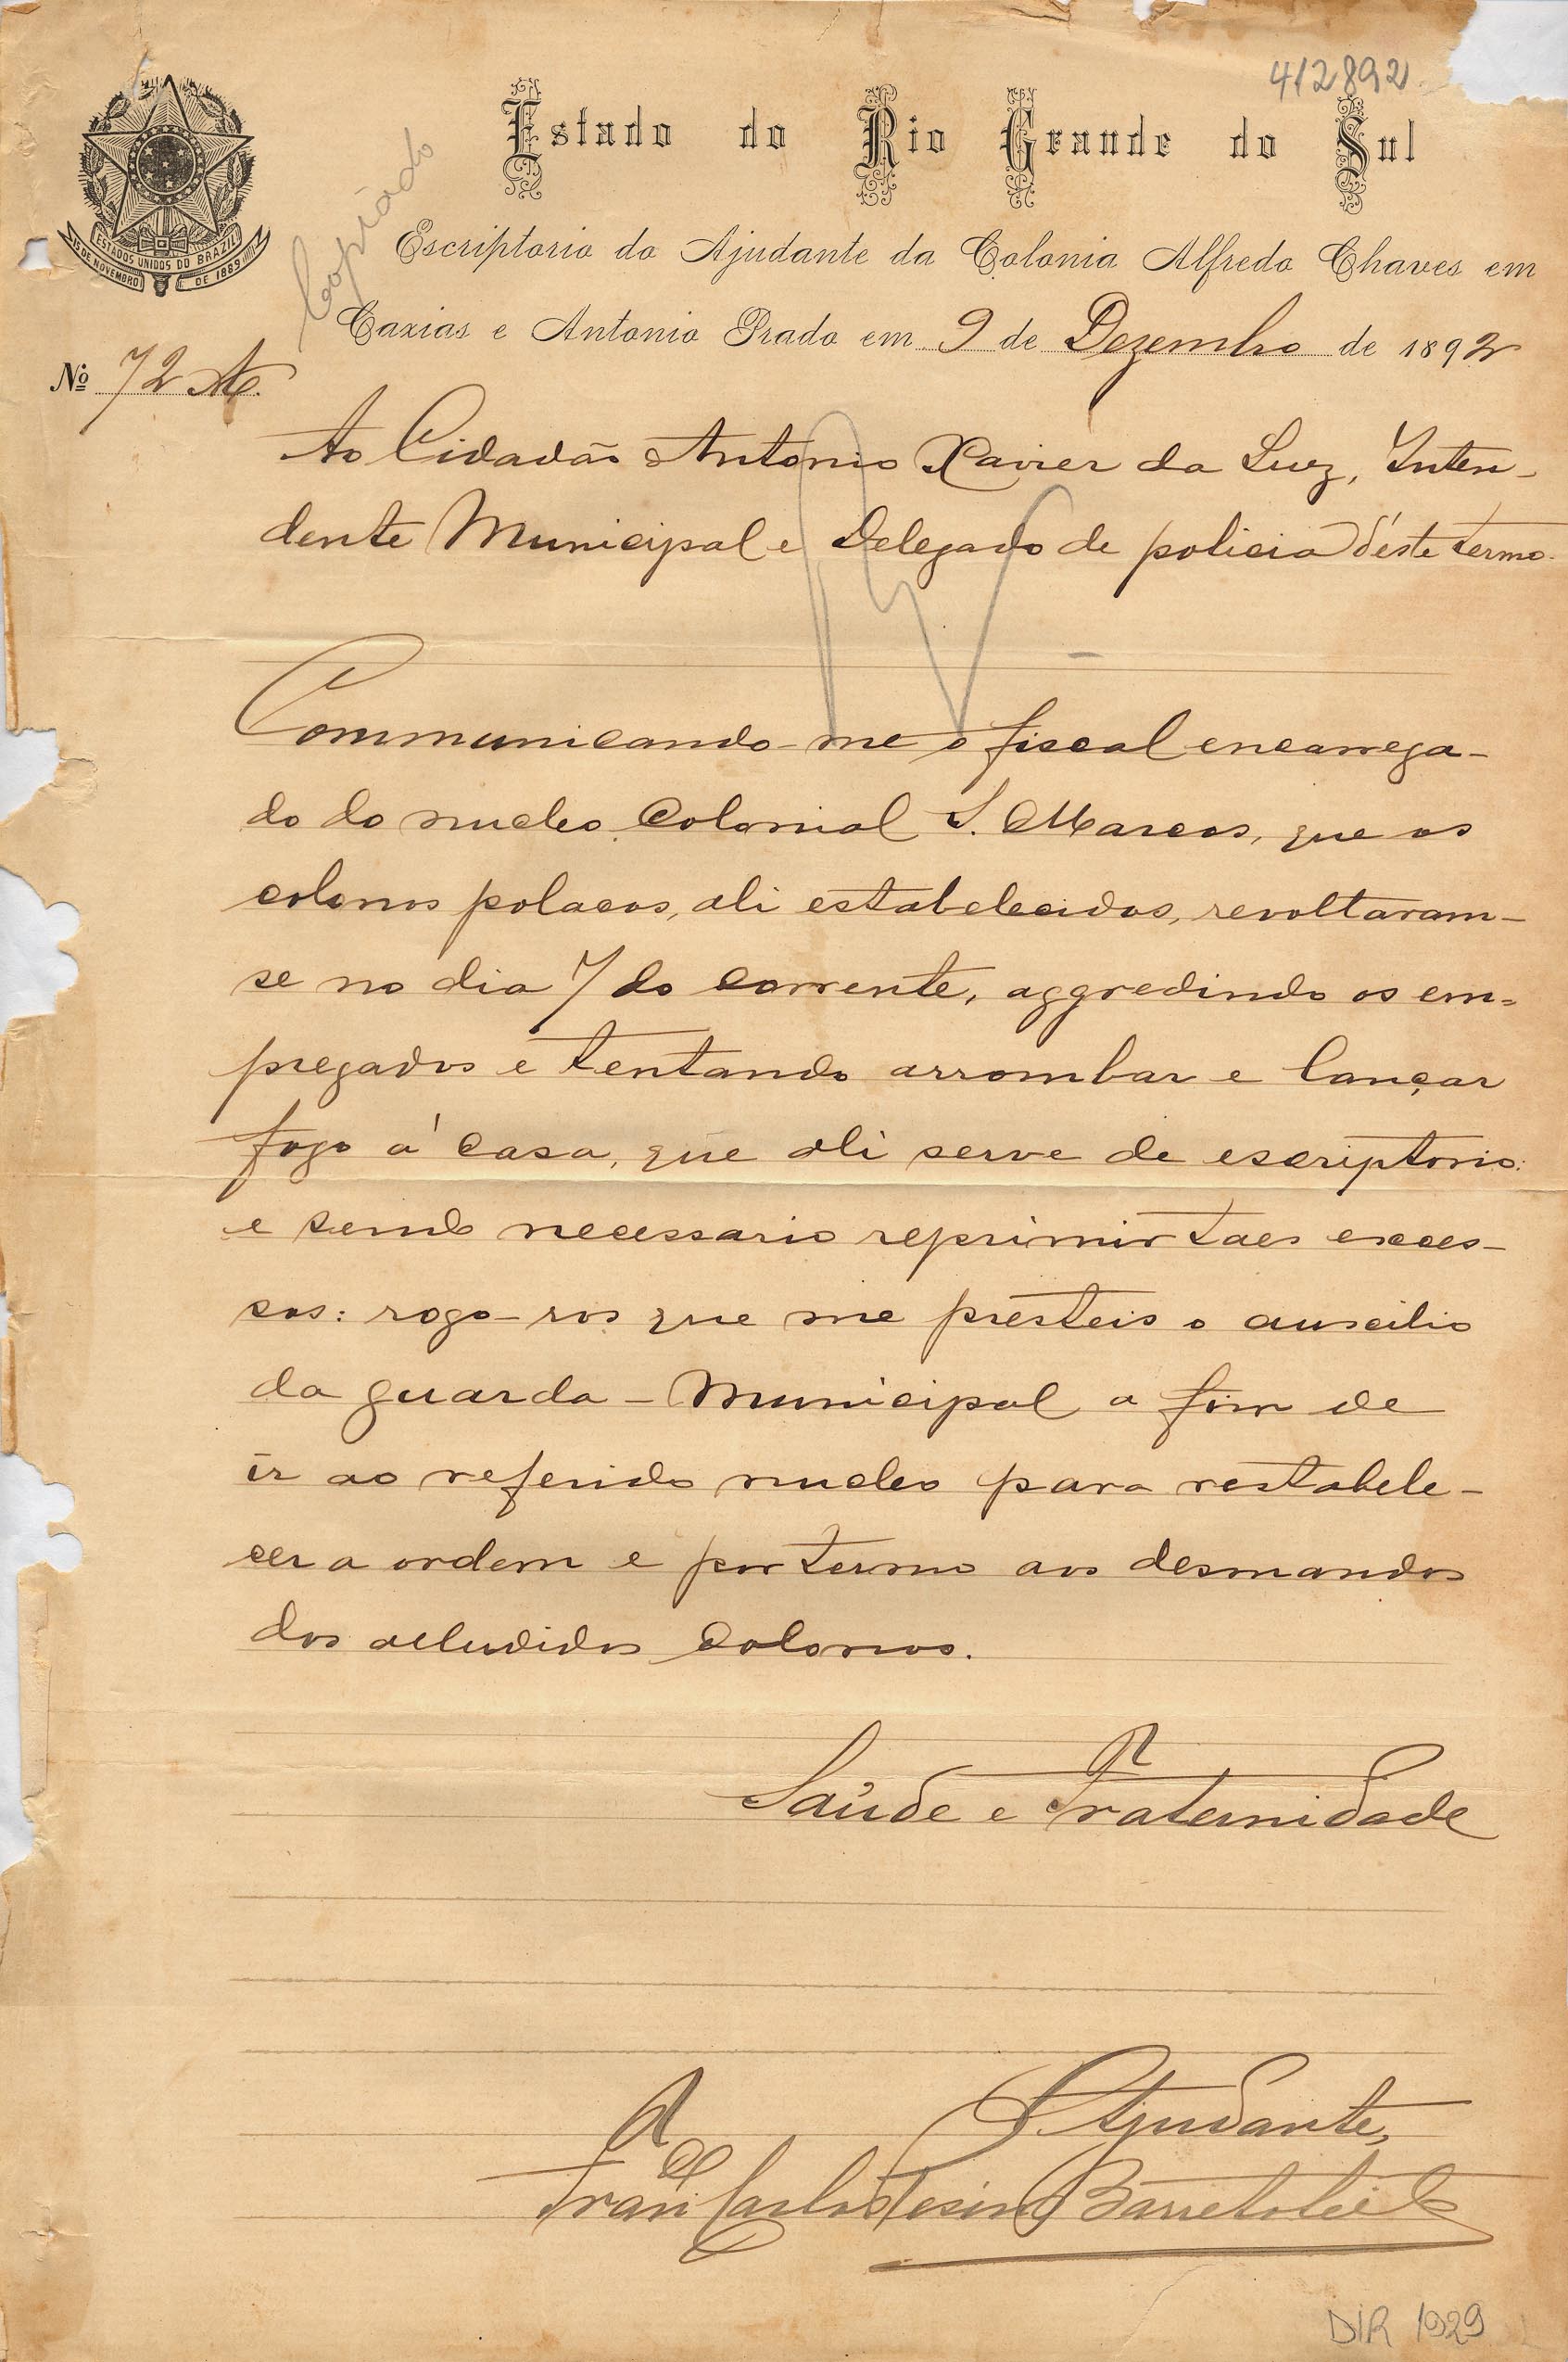 412892
Estado do Rio Grande do Sul
ESTADOS UNIDOS DO BRAZIL
15 DE NOVEMBRO DE 1889
Copiado
Escriptorio do Ajudante da Colonia Alfredo Chaves em
Caxias e Antonio Prado em 9 de Dezembro de 1892
Nº 72
Ao Cidadão Antonio Xavier da Luz, Inten-
dente Municipal e Delegado de policia d'éste termo.
Communicando-me o fiscal encarrega-
do do nucleo Colonial S. Marcos, que os
colonos polacos, ali estabelecidos, revoltaram-
se no dia 7 do corrente, aggredindo os em-
pregados e tentando arrombar e lançar
fogo á casa, que ali serve de escriptorio:
e sendo necessario reprimir taes exces-
sos: rogo-vos que me presteis o auxilio
da guarda-Municipal a fim de
ir ao referido nucleo para restabele-
cer a ordem e por termo aos desmandos
dos alludidos colonos.
Saúde e Fraternidade
O Ajudante,
Carlos Barreto
DIR 1929